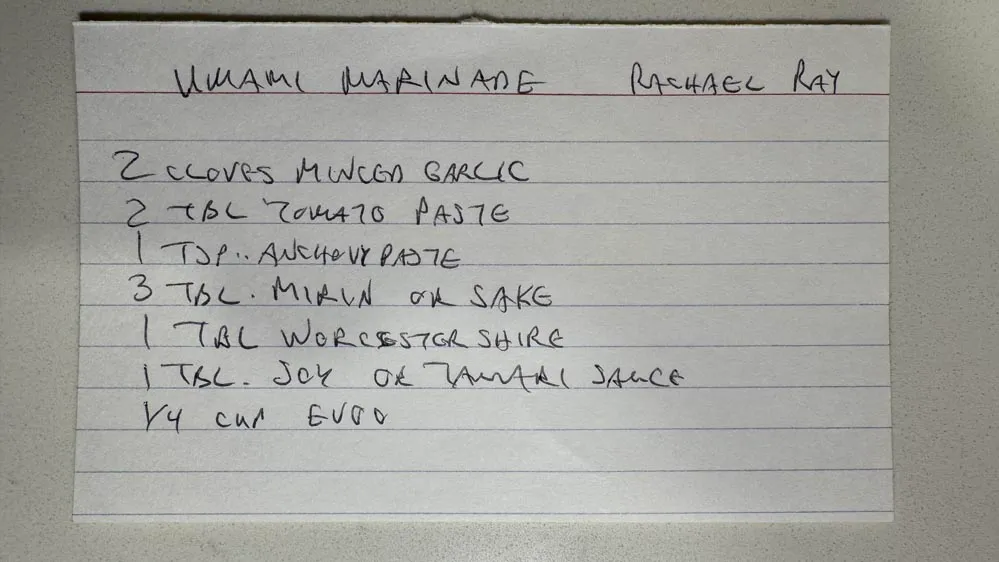 UMAMI MARINADE RACHAEL RAY
2 CLOVES MINCED GARLIC
2 TBL TOMATO PASTE
1 TSP.. ANCHOVY PASTE
3 TBL. MIRIN OR SAKE
1 TBL WORCESTERSHIRE
1 TBL. SOY OR TAMARI SAUCE
1/4 CUP EVOO